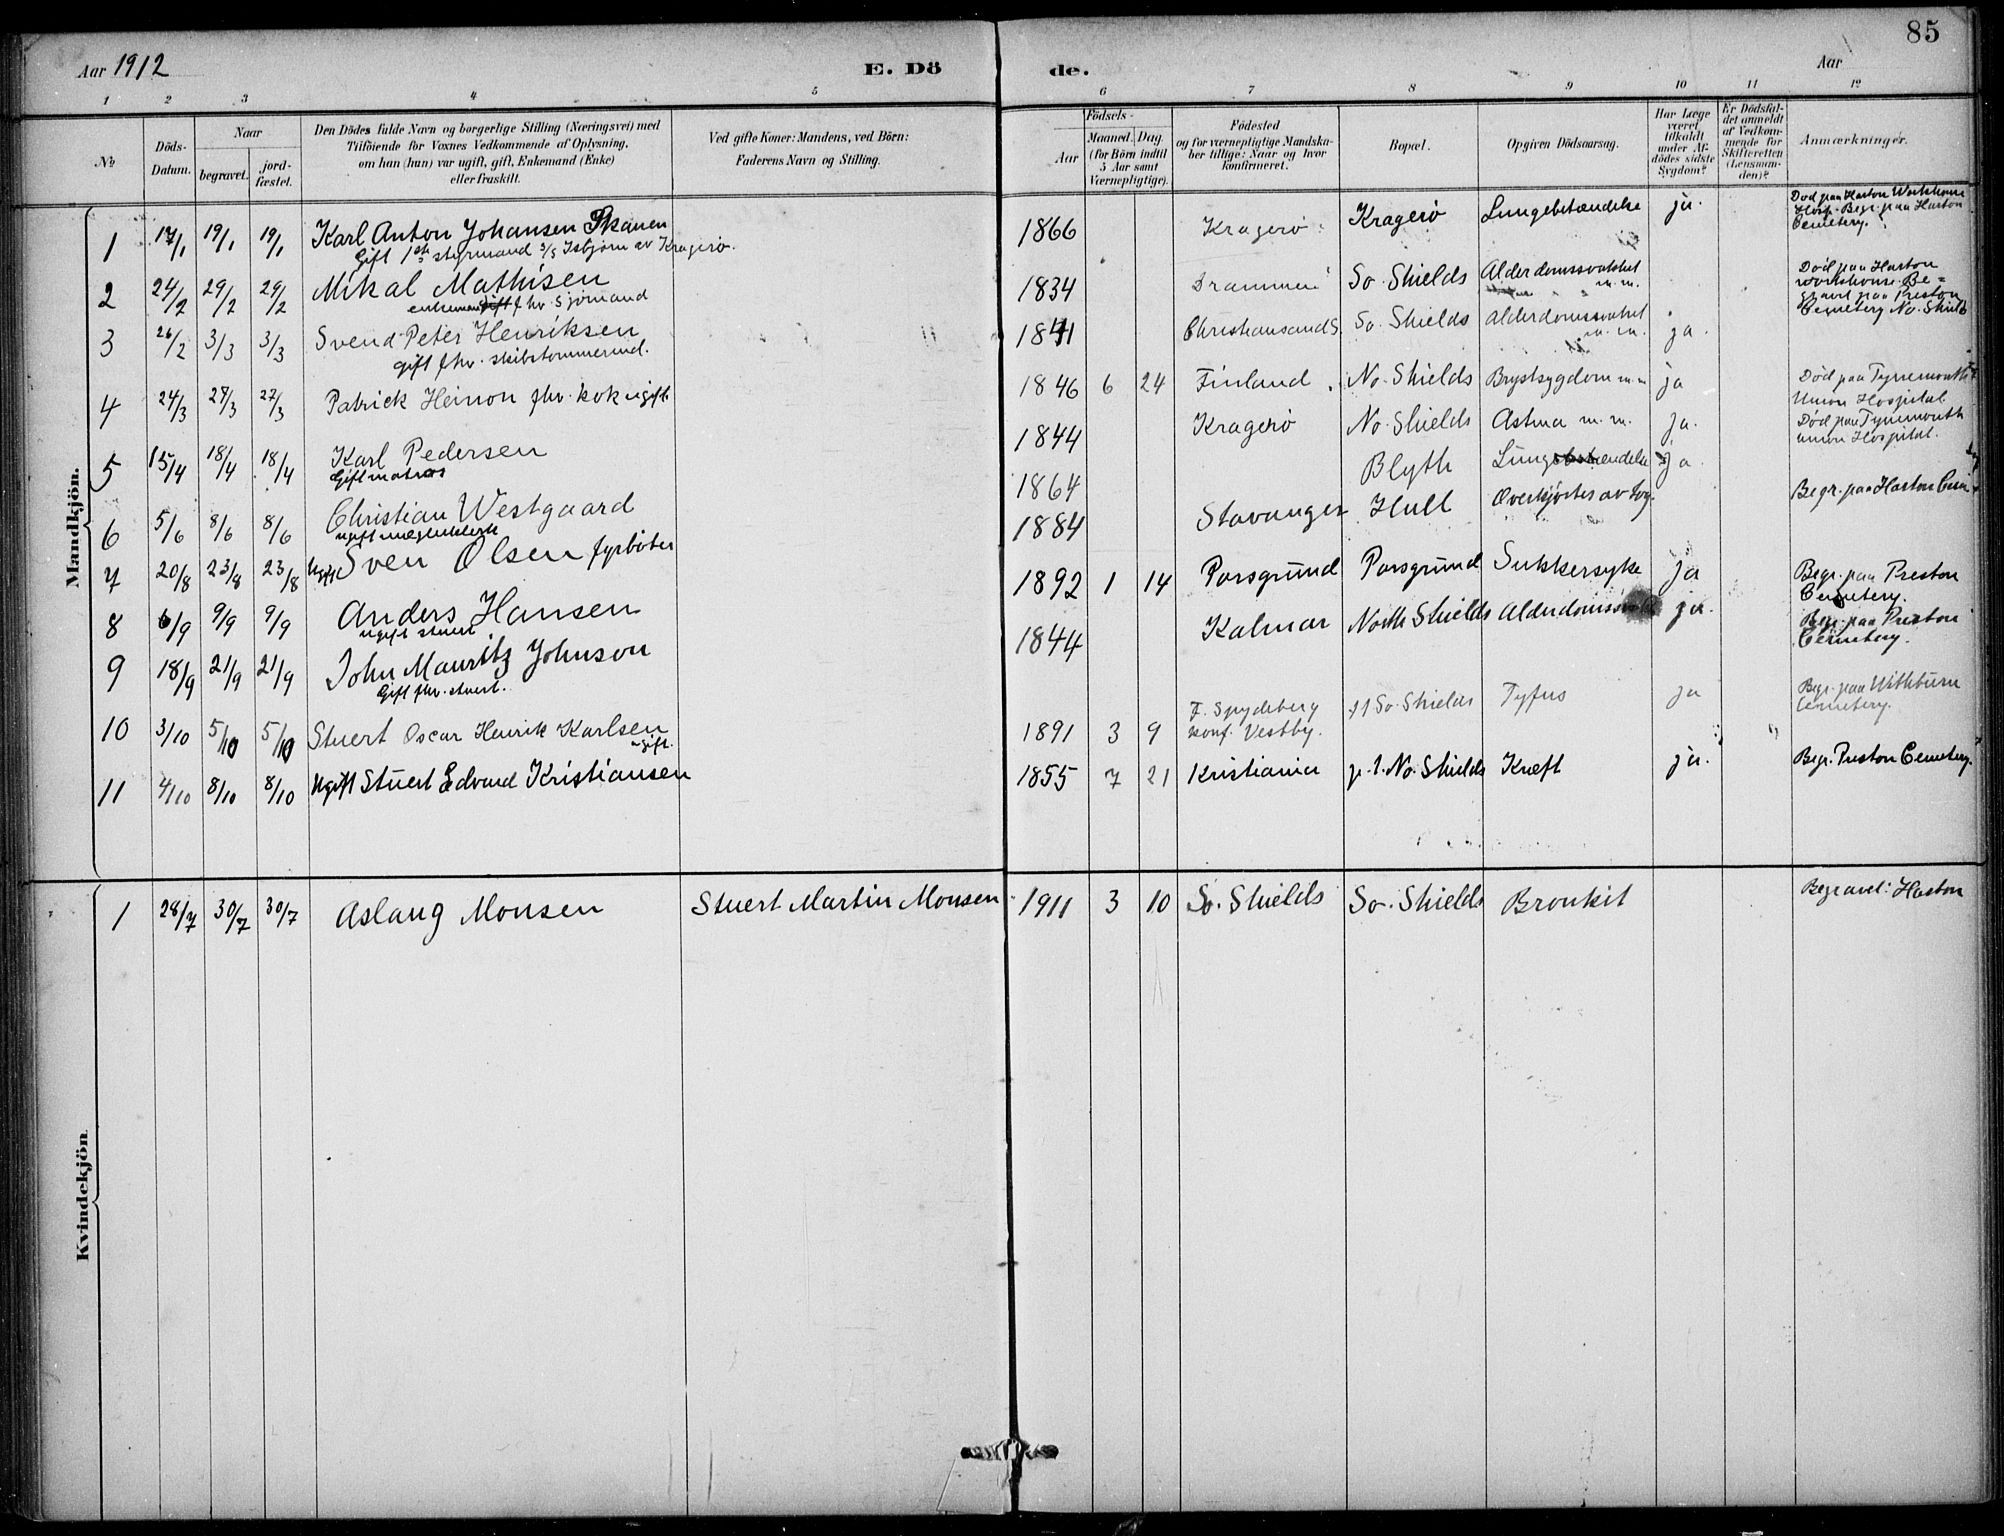 85
Aar 1912 E. Dö de. Aar
1 2 3 4 5 6 7 8 9 10 11 12
№
Döds-Datum.
Naar
begravet.
jord-fæstet.
Den Dödes fulde Navn og borgerlige Stilling (Næringsvei) med
Tilföiende for Voxnes Vedkommende af Oplysning,
om han (hun) var ugift, gift, Enkemand (Enke)
eller fraskilt.
Ved gifte Koner: Mandens, ved Börn:
Faderens Navn og Stilling.
Födsels-
Aar
Maaned. Dag.
(for Börn indtil
5 Aar samt
Værnepligtige).
Födested
og for værnepligtige Mandska-
ber tillige: Naar og hvor
konfirmeret.
Bopæl.
Opgiven Dödsaarsag.
Har Læge
været
tilkaldt
under Af-
dödes sidste
Sygdom?
Er Dödsfal-
det anmeldt
af Vedkom-
mende for
Skifteretten
(Lensman-
den)?
Anmærkninger.
Mandkjön.
1 17/1 19/1 19/1 Karl Anton Johansen Skanen 1866 Kragerø Kragerø Lungebetændelse ja. Død paa Harton Workhouse
Hosp. Begr. paa Harton
Cemetery.
Gift 1ste styrmand s/s Isbjørn av Kragerø.
2 24/2 29/2 29/2 Mikal Mathisen 1834 Drammen So. Shields Alderdomssvakhet m.m. Død paa Harton
workhouse. Be-
gravet paa Preston
Cemetery No. Shields
enkemand fhv. sjømand
3 26/2 3/3 3/3 Svend Peter Henriksen 1841 Christiansand S. So. Shields Alderdomssvakhet m.m. ja.
gift fhv. skibstømmermd.
4 24/3 27/3 27/3 Patrick Heinon fhv. kok ugift 1846 6 24 Finland No. Shields Brystsygdom m.m ja Død paa Tynemouth
Union Hospital
5 15/4 18/4 18/4 Karl Pedersen 1844 Kragerø No. Shields Astma m.m. ja. Død paa Tynemouth
union Hospital.
Gift matros
1864 Blyth Lungebetændelse ja.
6 5/6 8/6 8/6 Christian Westgaard 1884 Stavanger Hull Overkjørtes av tog. Begr. paa Harton Cem
ugift meglerklerk
7 20/8 23/8 23/8 Ugift Sven Olsen fyrbøter 1892 1 14 Porsgrund Porsgrund Sukkersyke ja Begr. paa Preston
Cemetery.
8 6/9 9/9 9/9 Anders Hansen 1844 Kalmar North Shields Alderdomssvakh ja. Begr. paa Preston
Cemetery.
ugift stuert
9 18/9 21/9 21/9 John Mauritz Johnson
Gift fhv. stuert.
10 3/10 5/10 5/10 Stuert Oscar Henrik Karlsen ugift. 1891 3 9 F. Spydeberg
konf. Vestby. So. Shields Tyfus ja Begr. paa Withburn
Cemetery.
11 4/10 8/10 8/10 Ugift Stuert Edvard Kristiansen 1855 7 21 Kristiania No. Shields Kræft ja. Begr. Preston Cemetery.
Kvindekjön
1 28/7 30/7 30/7 Aslaug Monsen Stuert Martin Monsen 1911 3 10 So. Shields So. Shields Bronkit Begravet: Harton